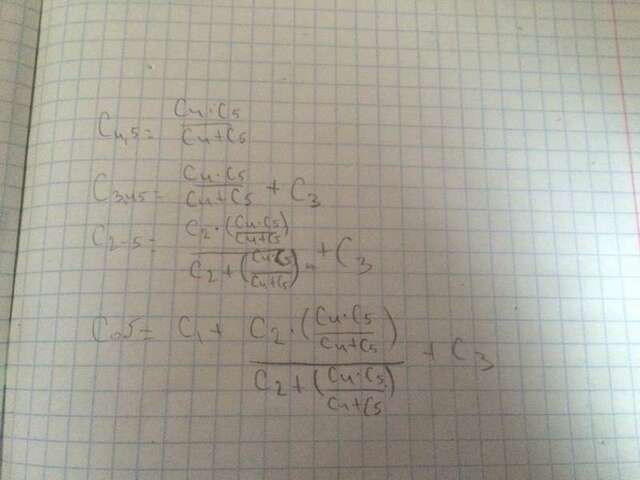 C₄,₅ = (C₄·C₅)/(C₄+C₅)
C₃₄₅ = (C₄·C₅)/(C₄+C₅) + C₃
C₂₋₅ = (C₂·((C₄·C₅)/(C₄+C₅)))/(C₂+((C₄·C₅)/(C₄+C₅))) + C₃
Cоб = C₁ + (C₂·((C₄·C₅)/(C₄+C₅)))/(C₂+((C₄·C₅)/(C₄+C₅))) + C₃